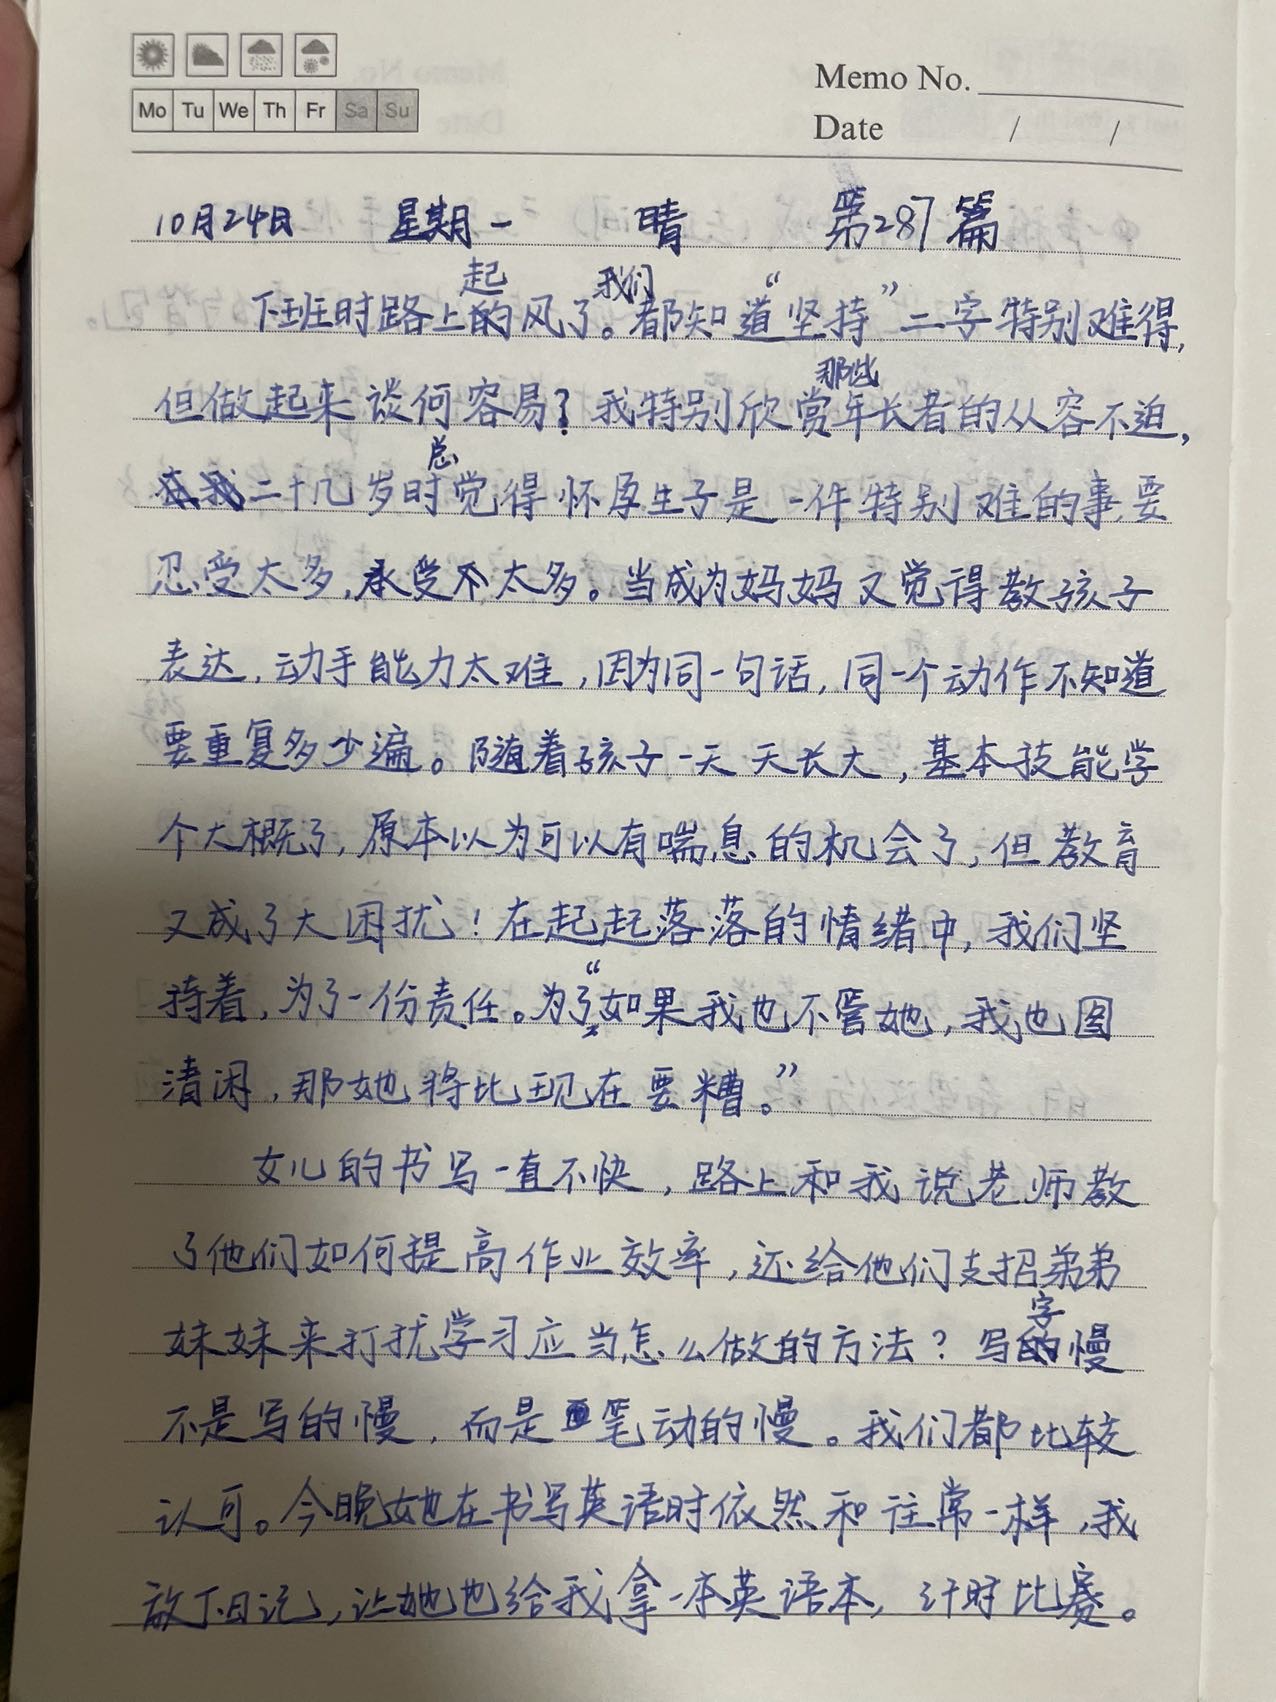 Mo Tu We Th Fr Sa Su
Memo No.
Date / /
10月24日 星期一 晴 第287篇
下班时路上起风了。我们都知道“坚持”二字特别难得,
但做起来谈何容易?我特别欣赏那些年长者的从容不迫,
二十几岁时总觉得怀孕生子是一件特别难的事,要
忍受太多,承受不太多。当成为妈妈又觉得教孩子
表达,动手能力太难,因为同一句话,同一个动作不知道
要重复多少遍。随着孩子一天天长大,基本技能学
个大概了,原本以为可以有喘息的机会了,但教育
又成了大困扰!在起起落落的情绪中,我们坚
持着,为了一份责任。为了“如果我也不管她,我也图
清闲,那她将比现在要糟。”
女儿的书写一直不快,路上和我说老师教
了他们如何提高作业效率,还给他们支招弟弟
妹妹来打扰学习应当怎么做的方法?写字慢
不是写的慢,而是笔动的慢。我们都比较
认可。今晚她在书写英语时依然和往常一样,我
放下日记,让她也给我拿一本英语本,计时比赛。